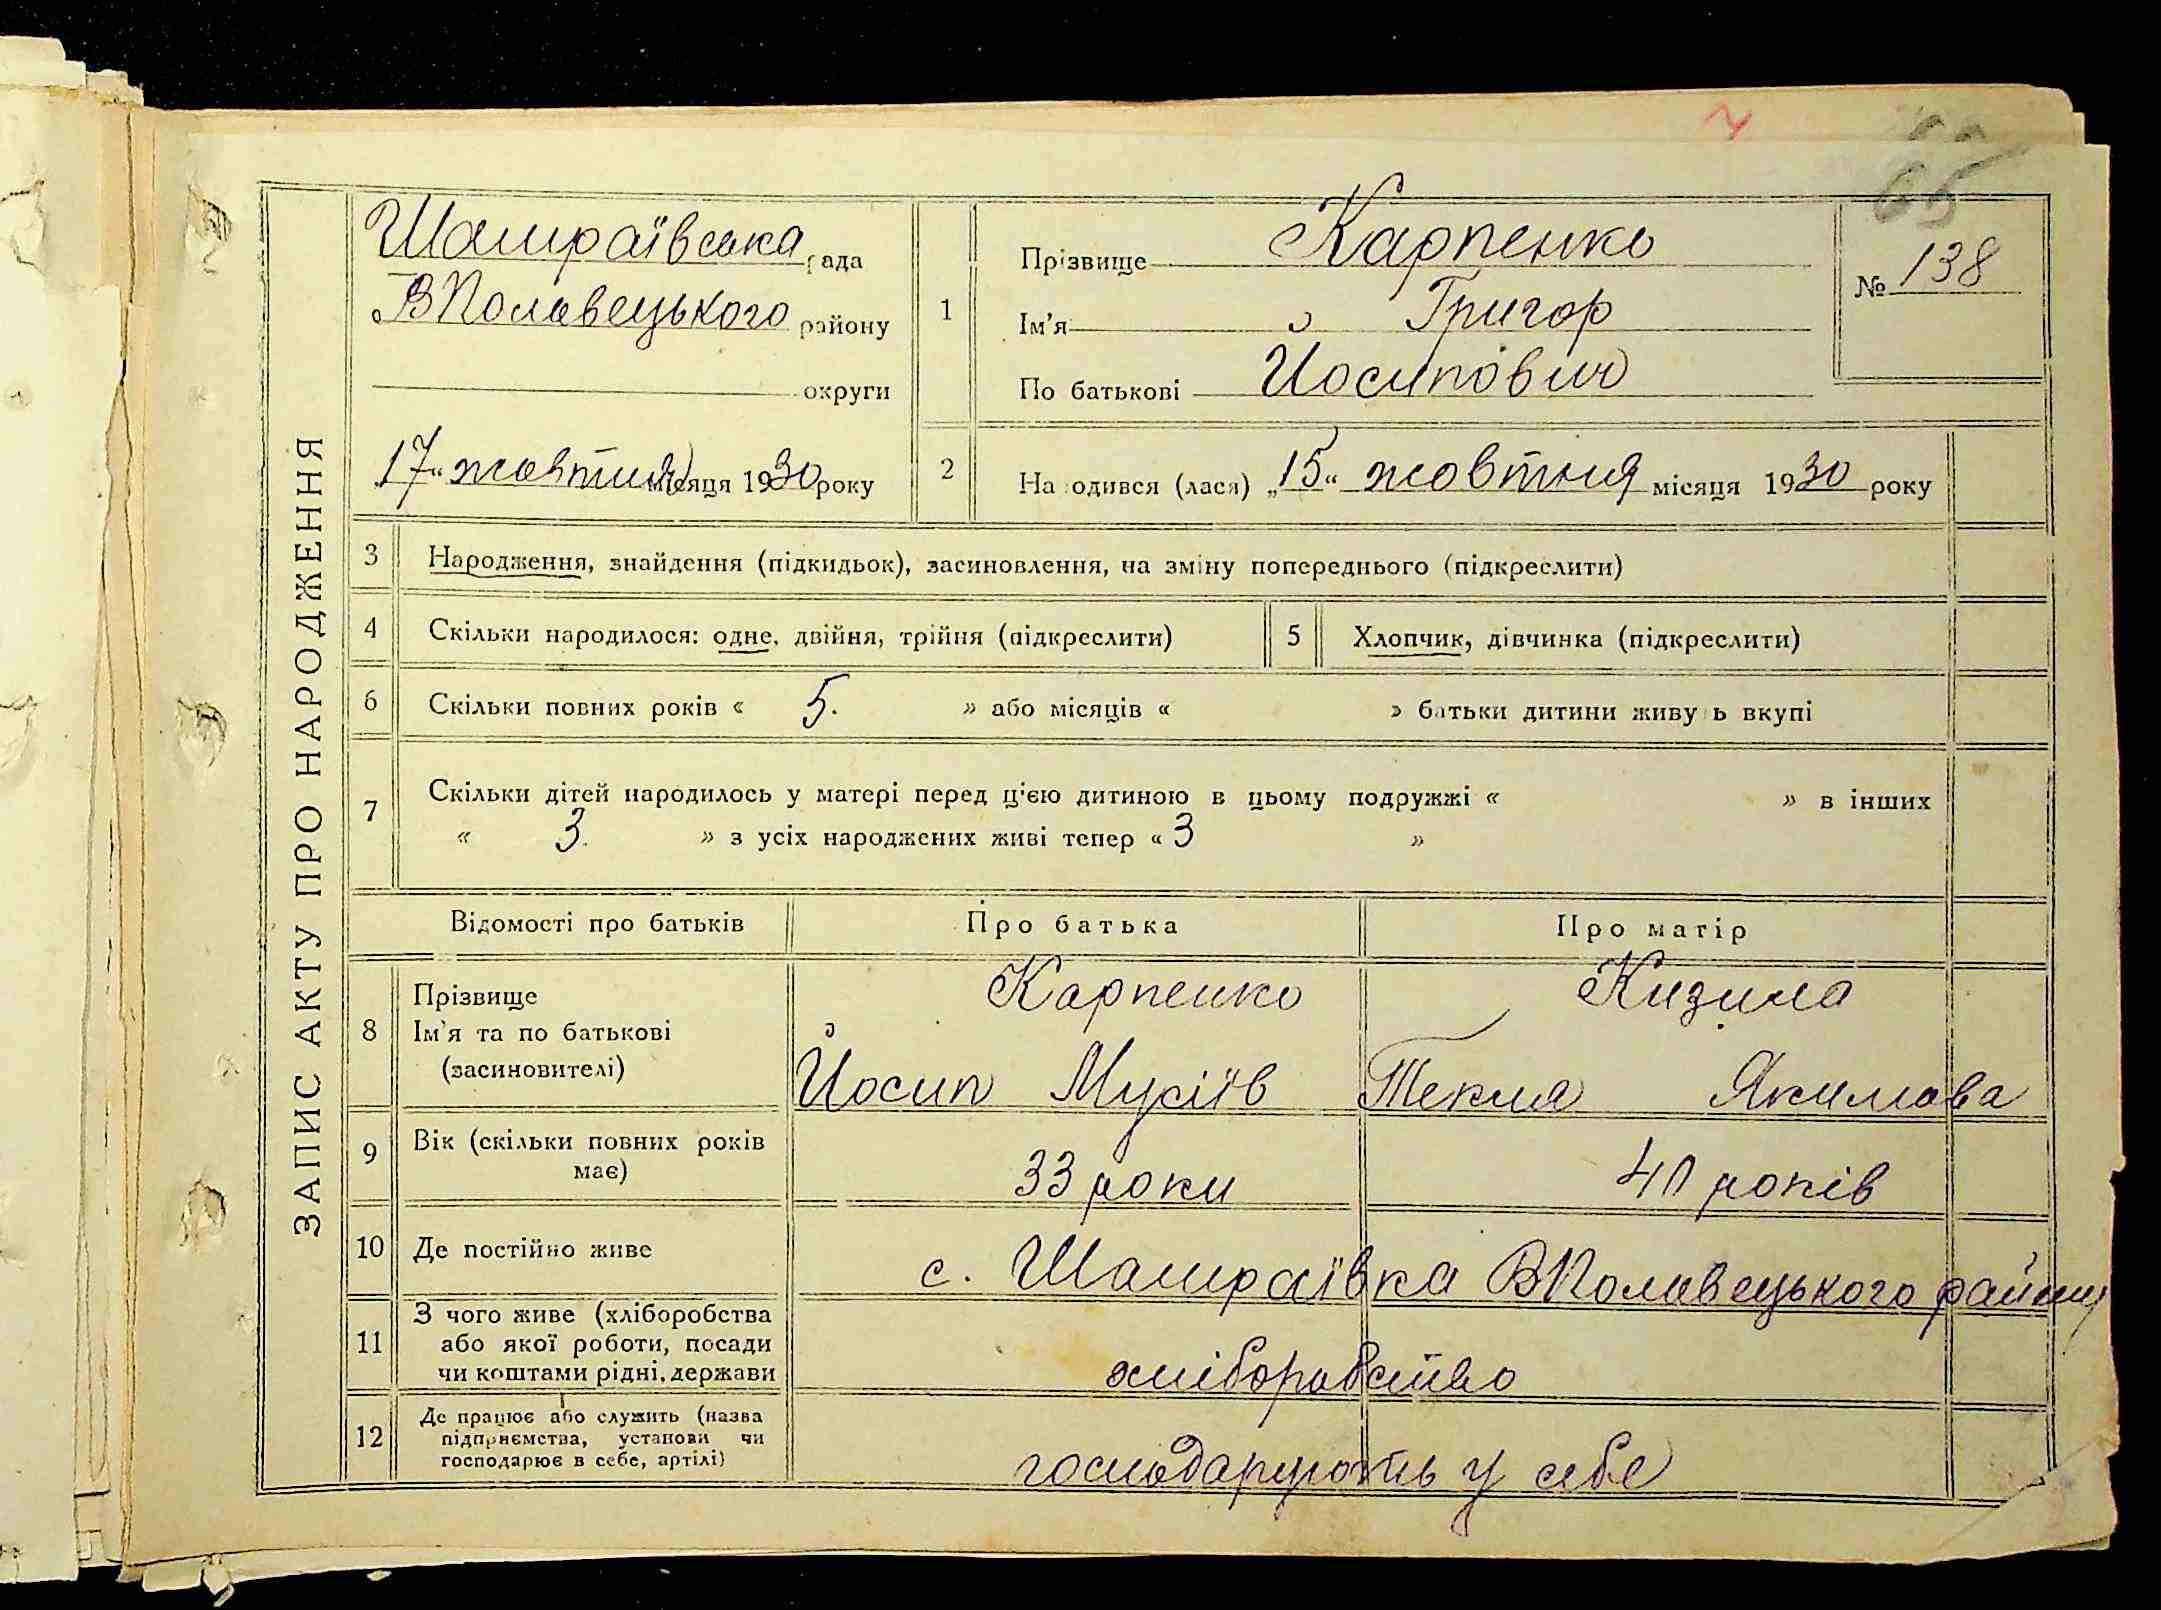 65
ЗАПИС АКТУ ПРО НАРОДЖЕННЯ
Шамраївська рада
ВПоловецького району
округи
17 " жовтня місяця 1930 року
1
Прізвище Карпенко
Ім'я Григор
По батькові Йосипович
№ 138
2
Народився (лася) „15“ жовтня місяця 1930 року
3 Народження, знайдення (підкидьок), засиновлення, на зміну попереднього (підкреслити)
4 Скільки народилося: одне, двійня, трійня (підкреслити) 5 Хлопчик, дівчинка (підкреслити)
6 Скільки повних років « 5. » або місяців « » батьки дитини живуть вкупі
7 Скільки дітей народилось у матері перед цією дитиною в цьому подружжі « » в інших
« 3. » з усіх народжених живі тепер « 3 »
Відомості про батьків Про батька Про матір
8 Прізвище Карпенко Кизима
Ім'я та по батькові Йосип Мусіїв Текля Якимова
(засиновителі)
9 Вік (скільки повних років
має) 33 роки 40 років
10 Де постійно живе с. Шамраївка ВПоловецького району
11 З чого живе (хліборобства
або якої роботи, посади
чи коштами рідні, держави хліборобство
12 Де працює або служить (назва
підприємства, установи чи
господарює в себе, артілі) господарують у себе